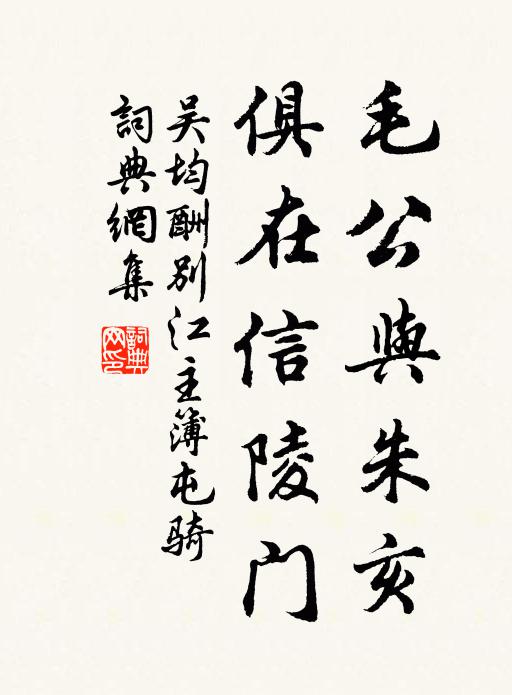 毛公與朱亥
俱在信陵门
吴均酬别江主簿屯骑
詞典網集
詞典网印